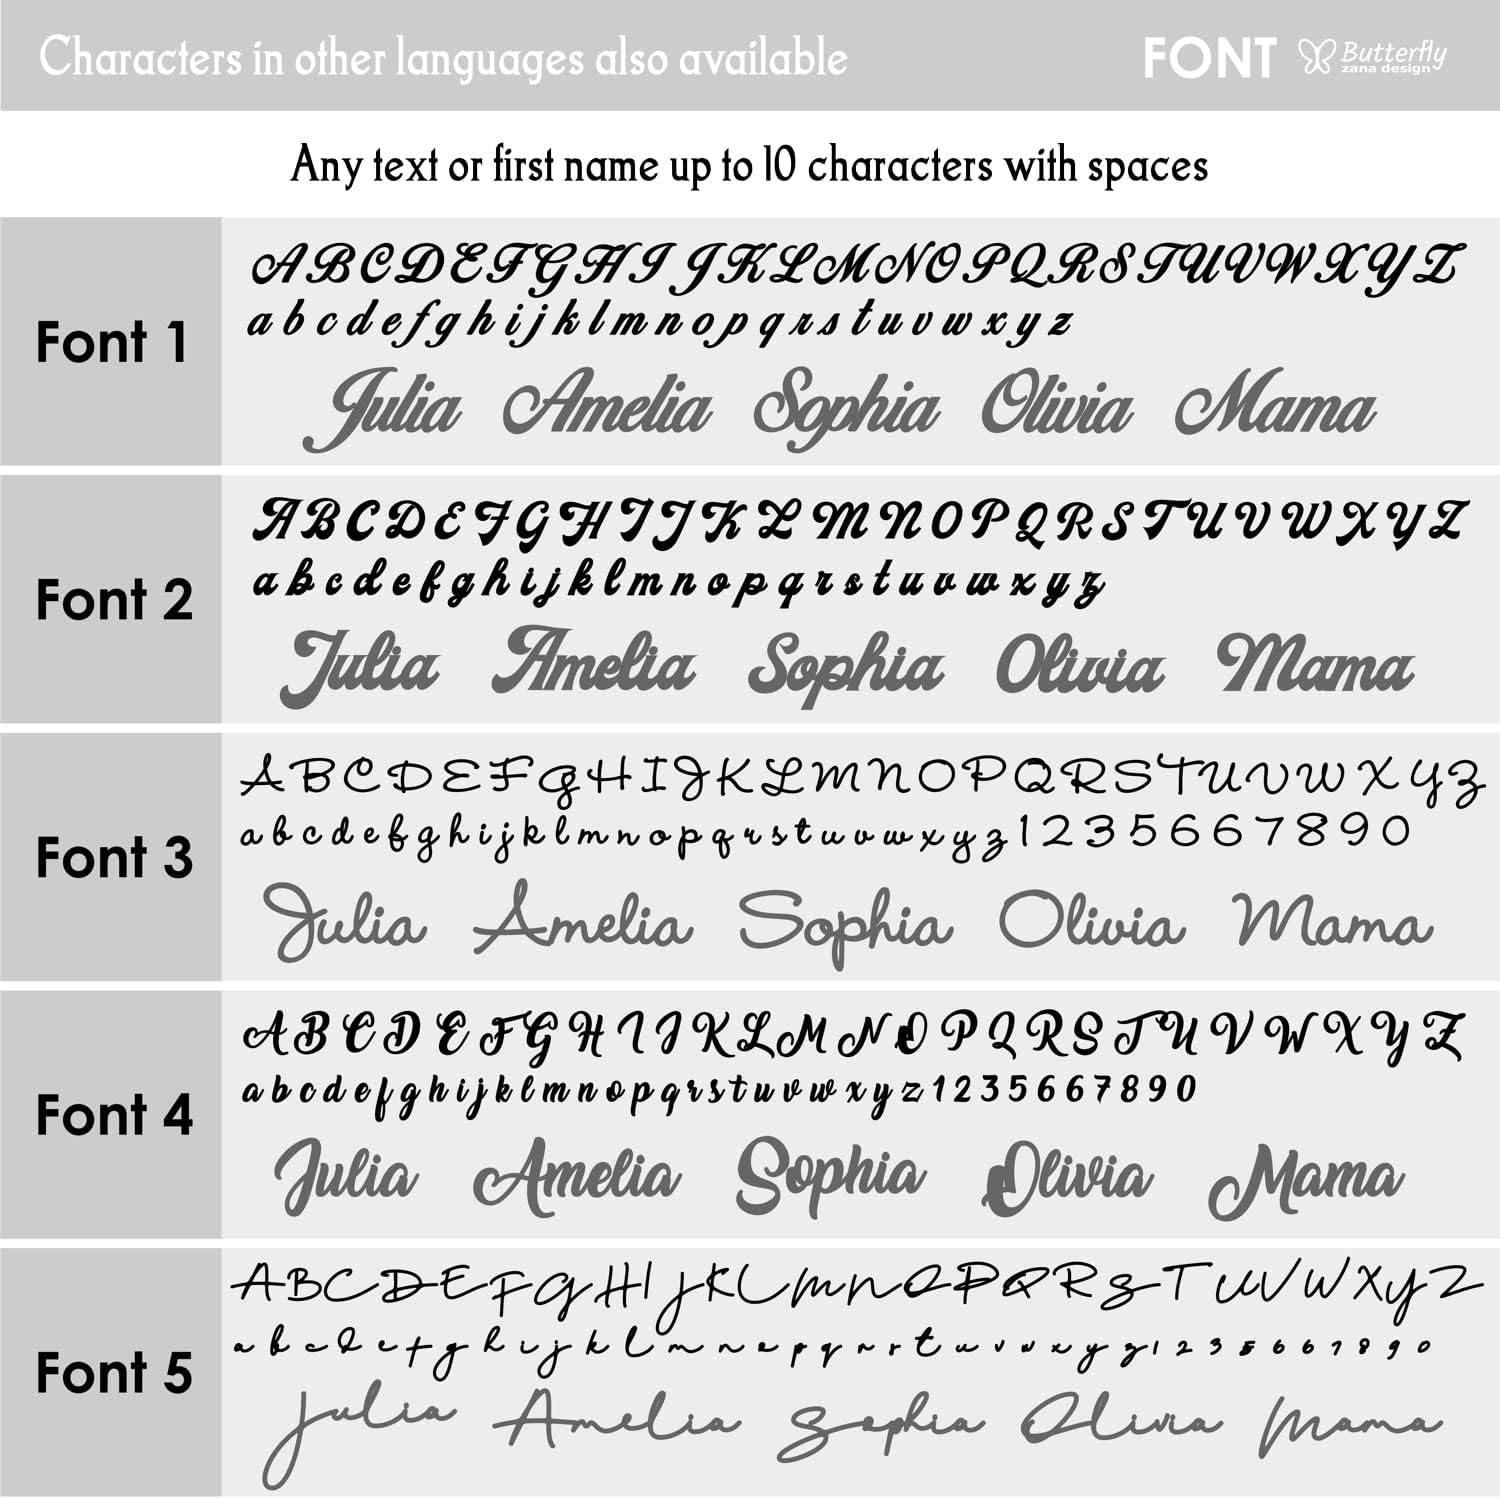 Characters in other languages also available
FONT Butterfly
zana design
Any text or first name up to 10 characters with spaces
Font 1
A B C D E F G H I J K L M N O P Q R S T U V W X Y Z
a b c d e f g h i j k l m n o p q r s t u v w x y z
Julia Amelia Sophia Olivia Mama
Font 2
A B C D E F G H I J K L M N O P Q R S T U V W X Y Z
a b c d e f g h i j k l m n o p q r s t u v w x y z
Julia Amelia Sophia Olivia Mama
Font 3
A B C D E F G H I J K L M N O P Q R S T U V W X Y Z
a b c d e f g h i j k l m n o p q r s t u v w x y z 1 2 3 5 6 6 7 8 9 0
Julia Amelia Sophia Olivia Mama
Font 4
A B C D E F G H I J K L M N O P Q R S T U V W X Y Z
a b c d e f g h i j k l m n o p q r s t u v w x y z 1 2 3 5 6 6 7 8 9 0
Julia Amelia Sophia Olivia Mama
Font 5
A B C D E F G H I J K L M N O P Q R S T U V W X Y Z
a b c d e f g h i j k l m n o p q r s t u v w x y z 1 2 3 5 6 6 7 8 9 0
Julia Amelia Sophia Olivia Mama